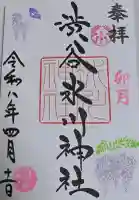 奉拝
卯月
渋谷氷川神社
令和八年四月十一日